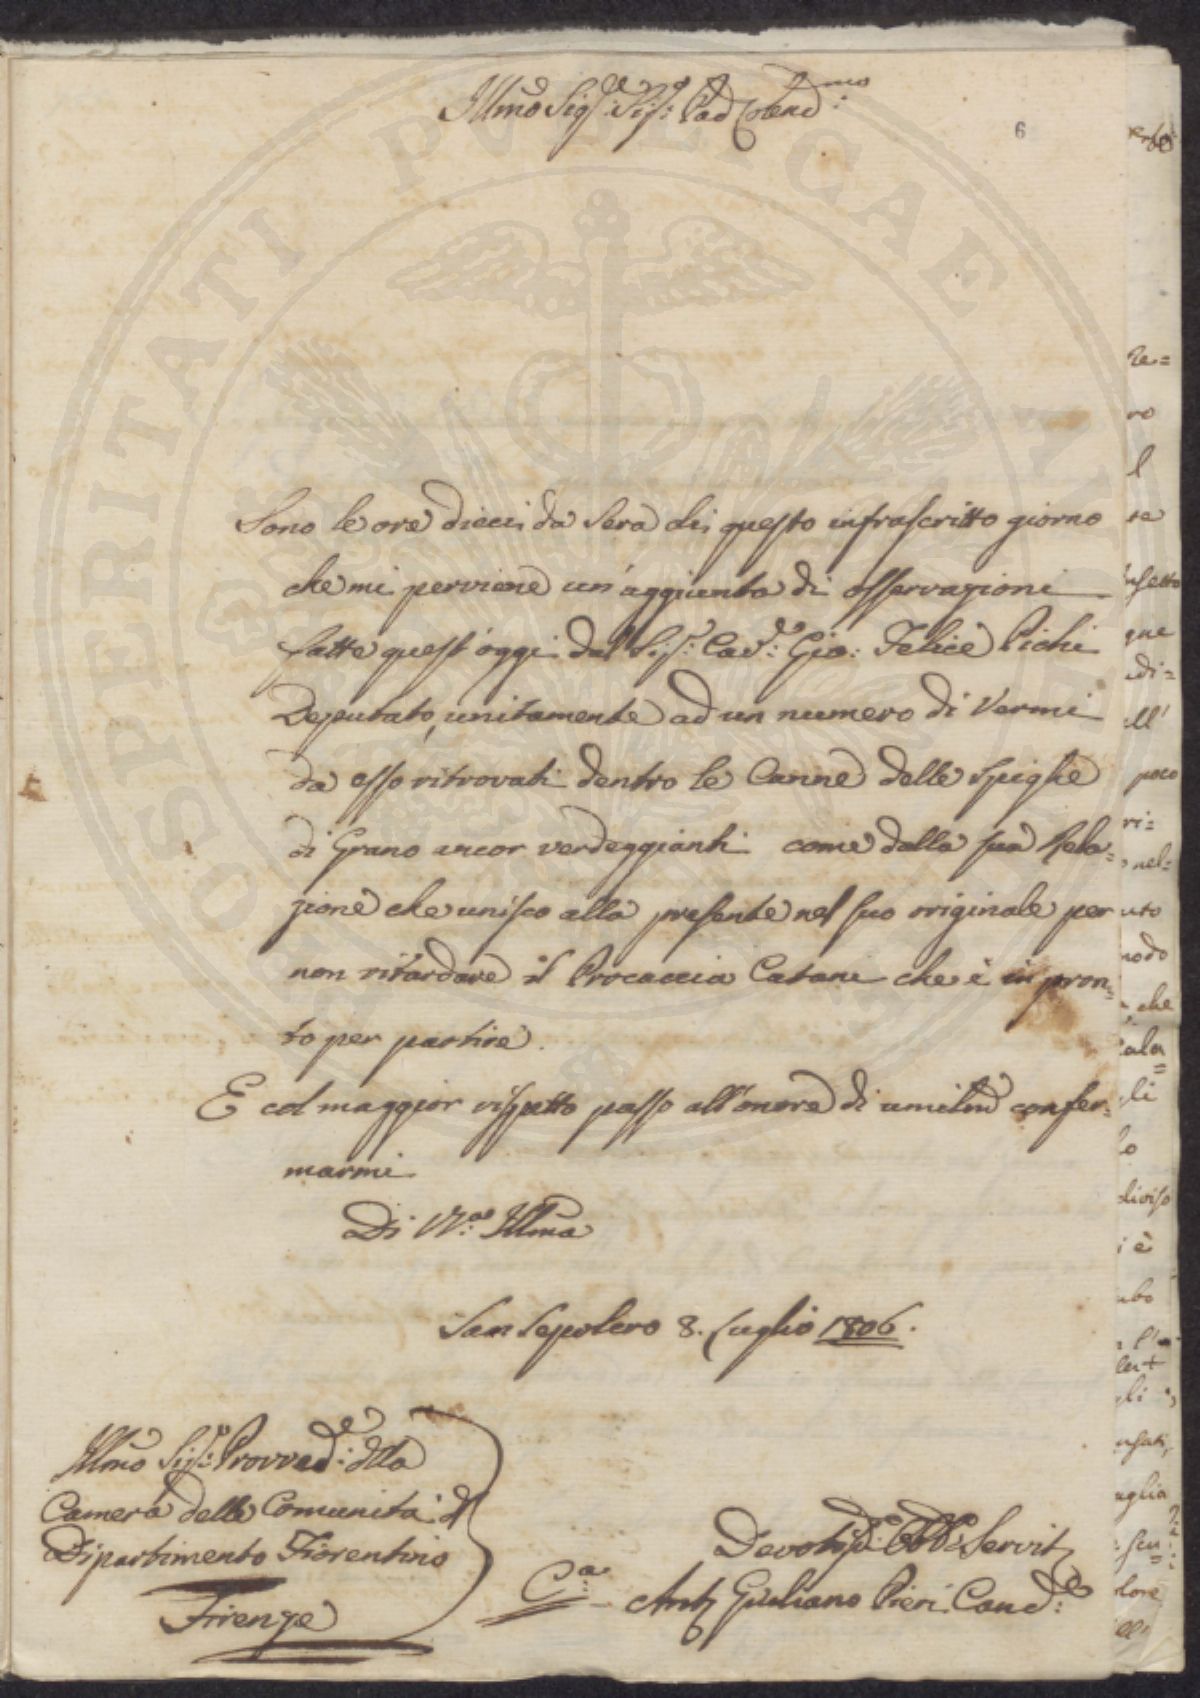 Illmo Sig.re Sig.e Pad Colend.mo
6
Sono le ore dieci da Sera di questo infrascritto giorno
che mi perviene un'aggiunta di osservazioni
fatte quest'oggi dal Sig.r Cav.re Gio: Felice Pichi
Deputato, unitamente ad un numero di Vermi
da esso ritrovati dentro le Canne delle Spighe
di Grano ancor verdeggianti come dalla sua Rela=
zione che unisco alla presente nel suo originale per
non ritardare il Procaccia Catani che è in pron=
to per partire.
E col maggior rispetto passo all'onore di umilm confer=
marmi
Di V.a Illma
San Sepolcro 8. Luglio 1806.
Illmo Sig.e Provved.re della
Camera delle Comunità d
Dipartimento Fiorentino
Firenze
Devotis Obb Servit
C.a Ant Giuliano Pieri Canc.e
re=
ro
l
te
nsetto
que
edi=
ell'
poco
ri=
nel=
uto
modo
che
ala=
li
lo
diviso
i è
ubo
l'
li
nsati,
aglia
scu=
lore
ll'